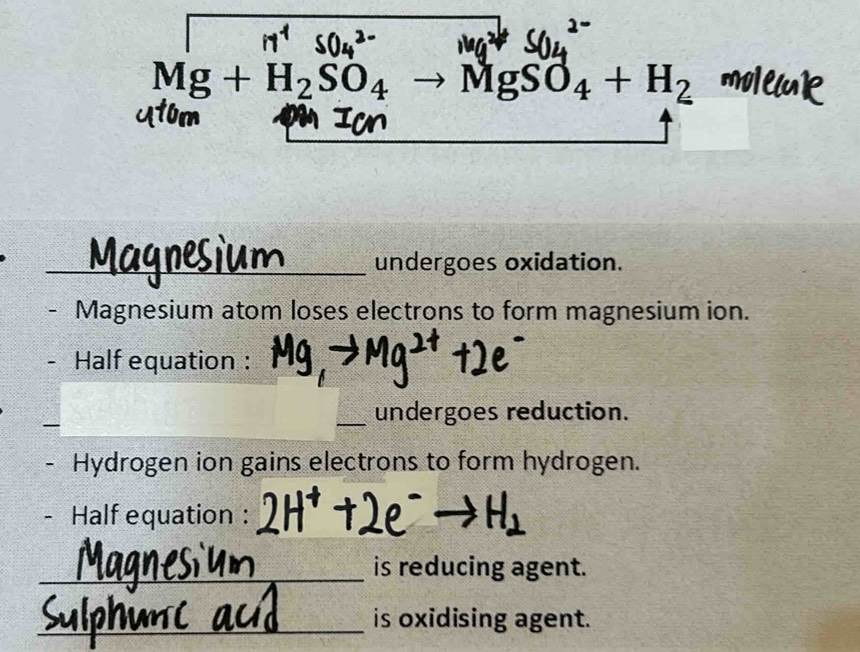 H⁺ SO₄²⁻ Mg²⁺ SO₄²⁻
Mg + H₂SO₄ → MgSO₄ + H₂ molecule
atom Ion
Magnesium undergoes oxidation.
- Magnesium atom loses electrons to form magnesium ion.
- Half equation : Mg → Mg²⁺ + 2e⁻
undergoes reduction.
- Hydrogen ion gains electrons to form hydrogen.
- Half equation : 2H⁺ + 2e⁻ → H₂
Magnesium is reducing agent.
Sulphuric acid is oxidising agent.